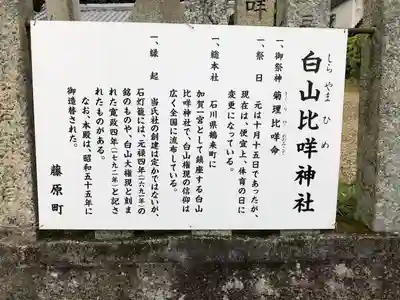 白山比咩神社
しらやまひめ
一、御祭神 菊理比咩命
一、祭 日
元は十月十五日であったが、
現在は、便宜上、体育の日に
変更になっている。
一、総本社
石川県鶴来町に
加賀一宮として鎮座する白山
比咩神社で、白山権現の信仰は
広く全国に流布している。
一、縁 起
当氏社の創建は定かではないが、
石灯籠には、元禄四年(一六九一年)の
銘のものや、白山大権現と刻ま
れた寛政四年(一七九二年)と記さ
れたものがある。
なお、本殿は、昭和五十五年に
御造替された。
藤原町